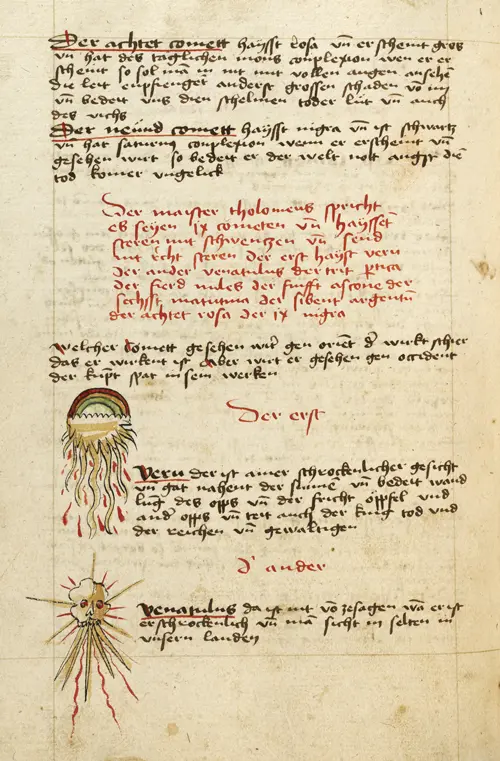 Der achtet comett haysst Rosa vn̄ er scheint gros
vn̄ hat des täglichen mons conplexion wen er er
scheint so sol mā in nit mit vollen augen ansehen
die leit enpfienget anderst grossen schaden vō im
vn̄ bedeit vns dien schelmen toder lüt vn̄ auch
des vichs
Der neünd comett haysst nigra vn̄ ist schwartz
vn̄ hat saturnus conplexion wenn er erscheint vn̄
gesehen wirt so bedeit er der welt nott angst die
tod komer vngelick
Der maister tholomeus spricht
es seyen ix cometen vn̄ haysset
steren mit schwentzen vn̄ send
nit recht steren der erst hayst veru
der ander venatulus der trit p̱tica
der fierd miles der finfft ascone der
sechsst matutina der sibent argentū
der achtet rosa der ix nigra
Welcher comett gesehen wirt gen oriēt d' wirkt schier
das er wirkent ist aber wirt er gesehen gen occident
der kūpt spat in sein werken
Der erst
Veru der ist ainer schrockenlicher gesicht
vn̄ gat nahent der sunnē vn̄ bedeit wand
lug des opps vn̄ der fricht öpffel vnd
andr' opps vn̄ teit auch der king tod vnd
der reichen vn̄ gewaltigen
d' ander
Venatulus da ist nit vō zesagen wā er ist
erschrockenlich vn̄ mā sicht in selten in
vnsern landen